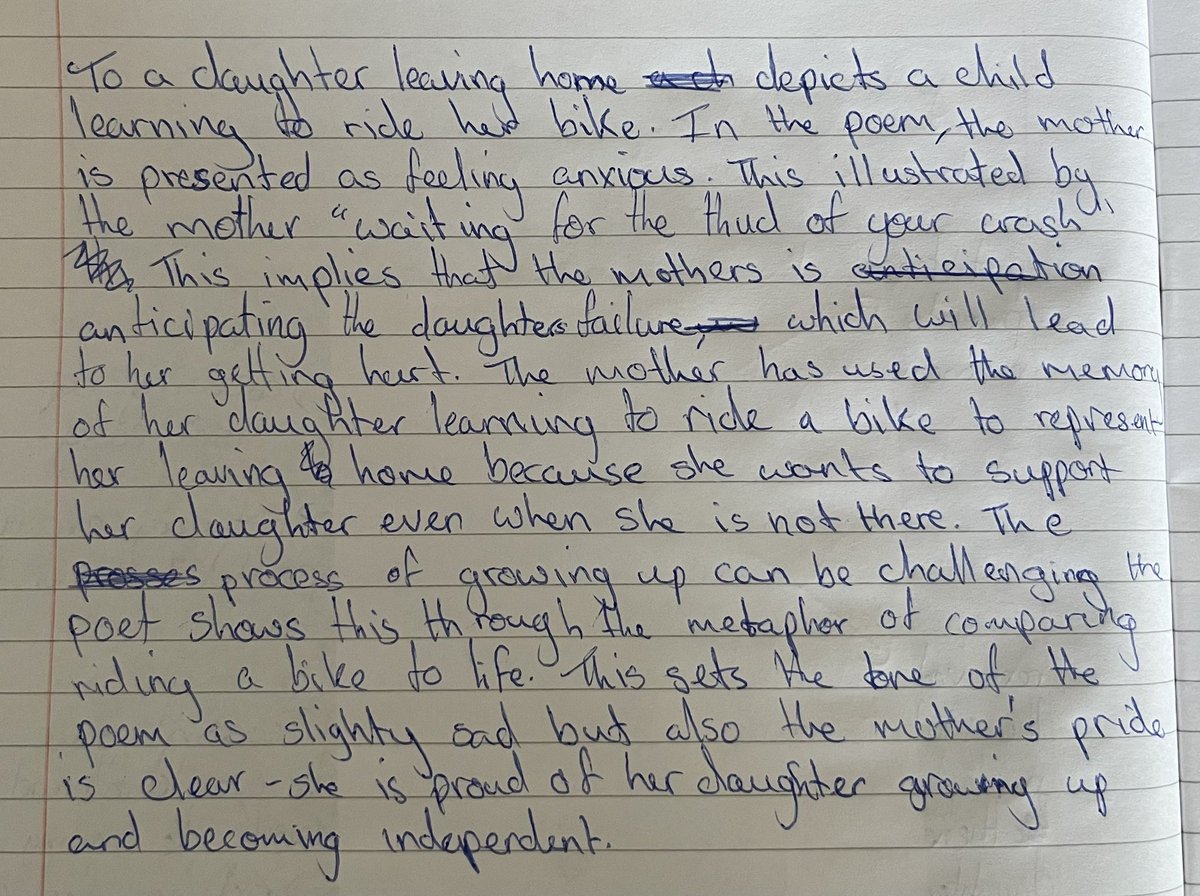 To a daughter leaving home depicts a child
learning to ride her bike. In the poem, the mother
is presented as feeling anxious. This illustrated by
the mother "waiting for the thud of your crash".
This implies that the mothers is anticipation
anticipating the daughters failure, which will lead
to her getting hurt. The mother has used the memory
of her daughter learning to ride a bike to represent
her leaving home because she wants to support
her daughter even when she is not there. The
prosses process of growing up can be challenging the
poet shows this through the metaphor of comparing
riding a bike to life. This sets the tone of the
poem as slighty sad but also the mother's pride
is clear - she is proud of her daughter growing up
and becoming independent.